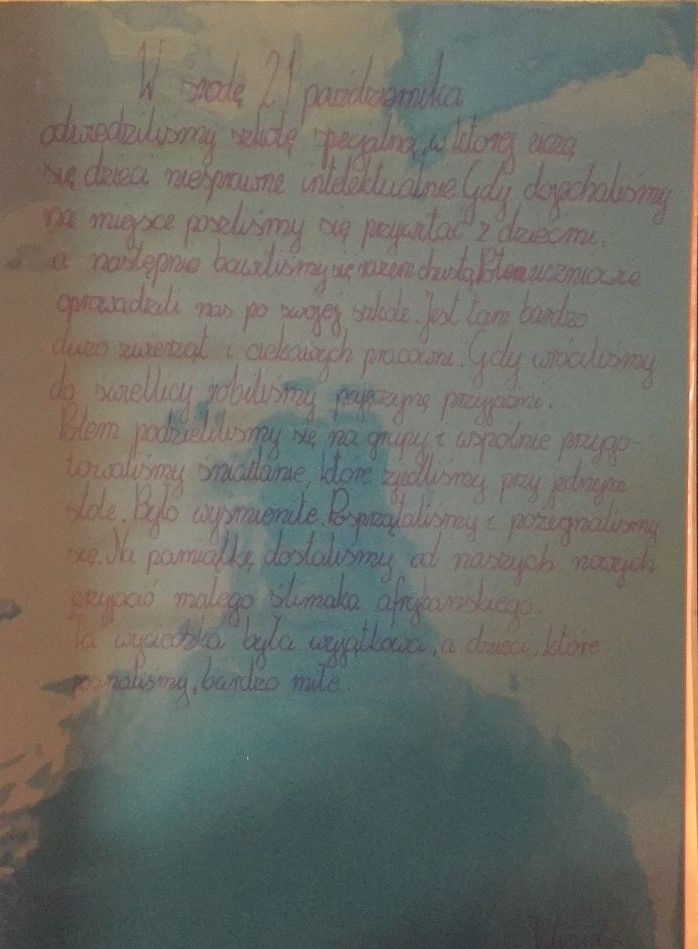 W środę 21 października
odwiedziliśmy szkołę specjalną, w której uczą
się dzieci niesprawne intelektualnie. Gdy dojechaliśmy
na miejsce poszliśmy się przywitać z dziećmi,
a następnie bawiliśmy się razem chustą. Potem uczniowie
oprowadzili nas po swojej szkole. Jest tam bardzo
dużo zwierząt i ciekawych pracowni. Gdy wróciliśmy
do świetlicy robiliśmy przyjaźni.
Potem podzieliliśmy się na grupy i wspólnie przygo-
towaliśmy śniadanie, które zjedliśmy przy jednym
stole. Było wyśmienite. Posprzątaliśmy i pożegnaliśmy
się. Na pamiątkę dostaliśmy od naszych nowych
przyjació małego ślimaka afrykańskiego.
Ta wycieczka była wyjątkowa, a dzieci, które
poznaliśmy, bardzo miłe.